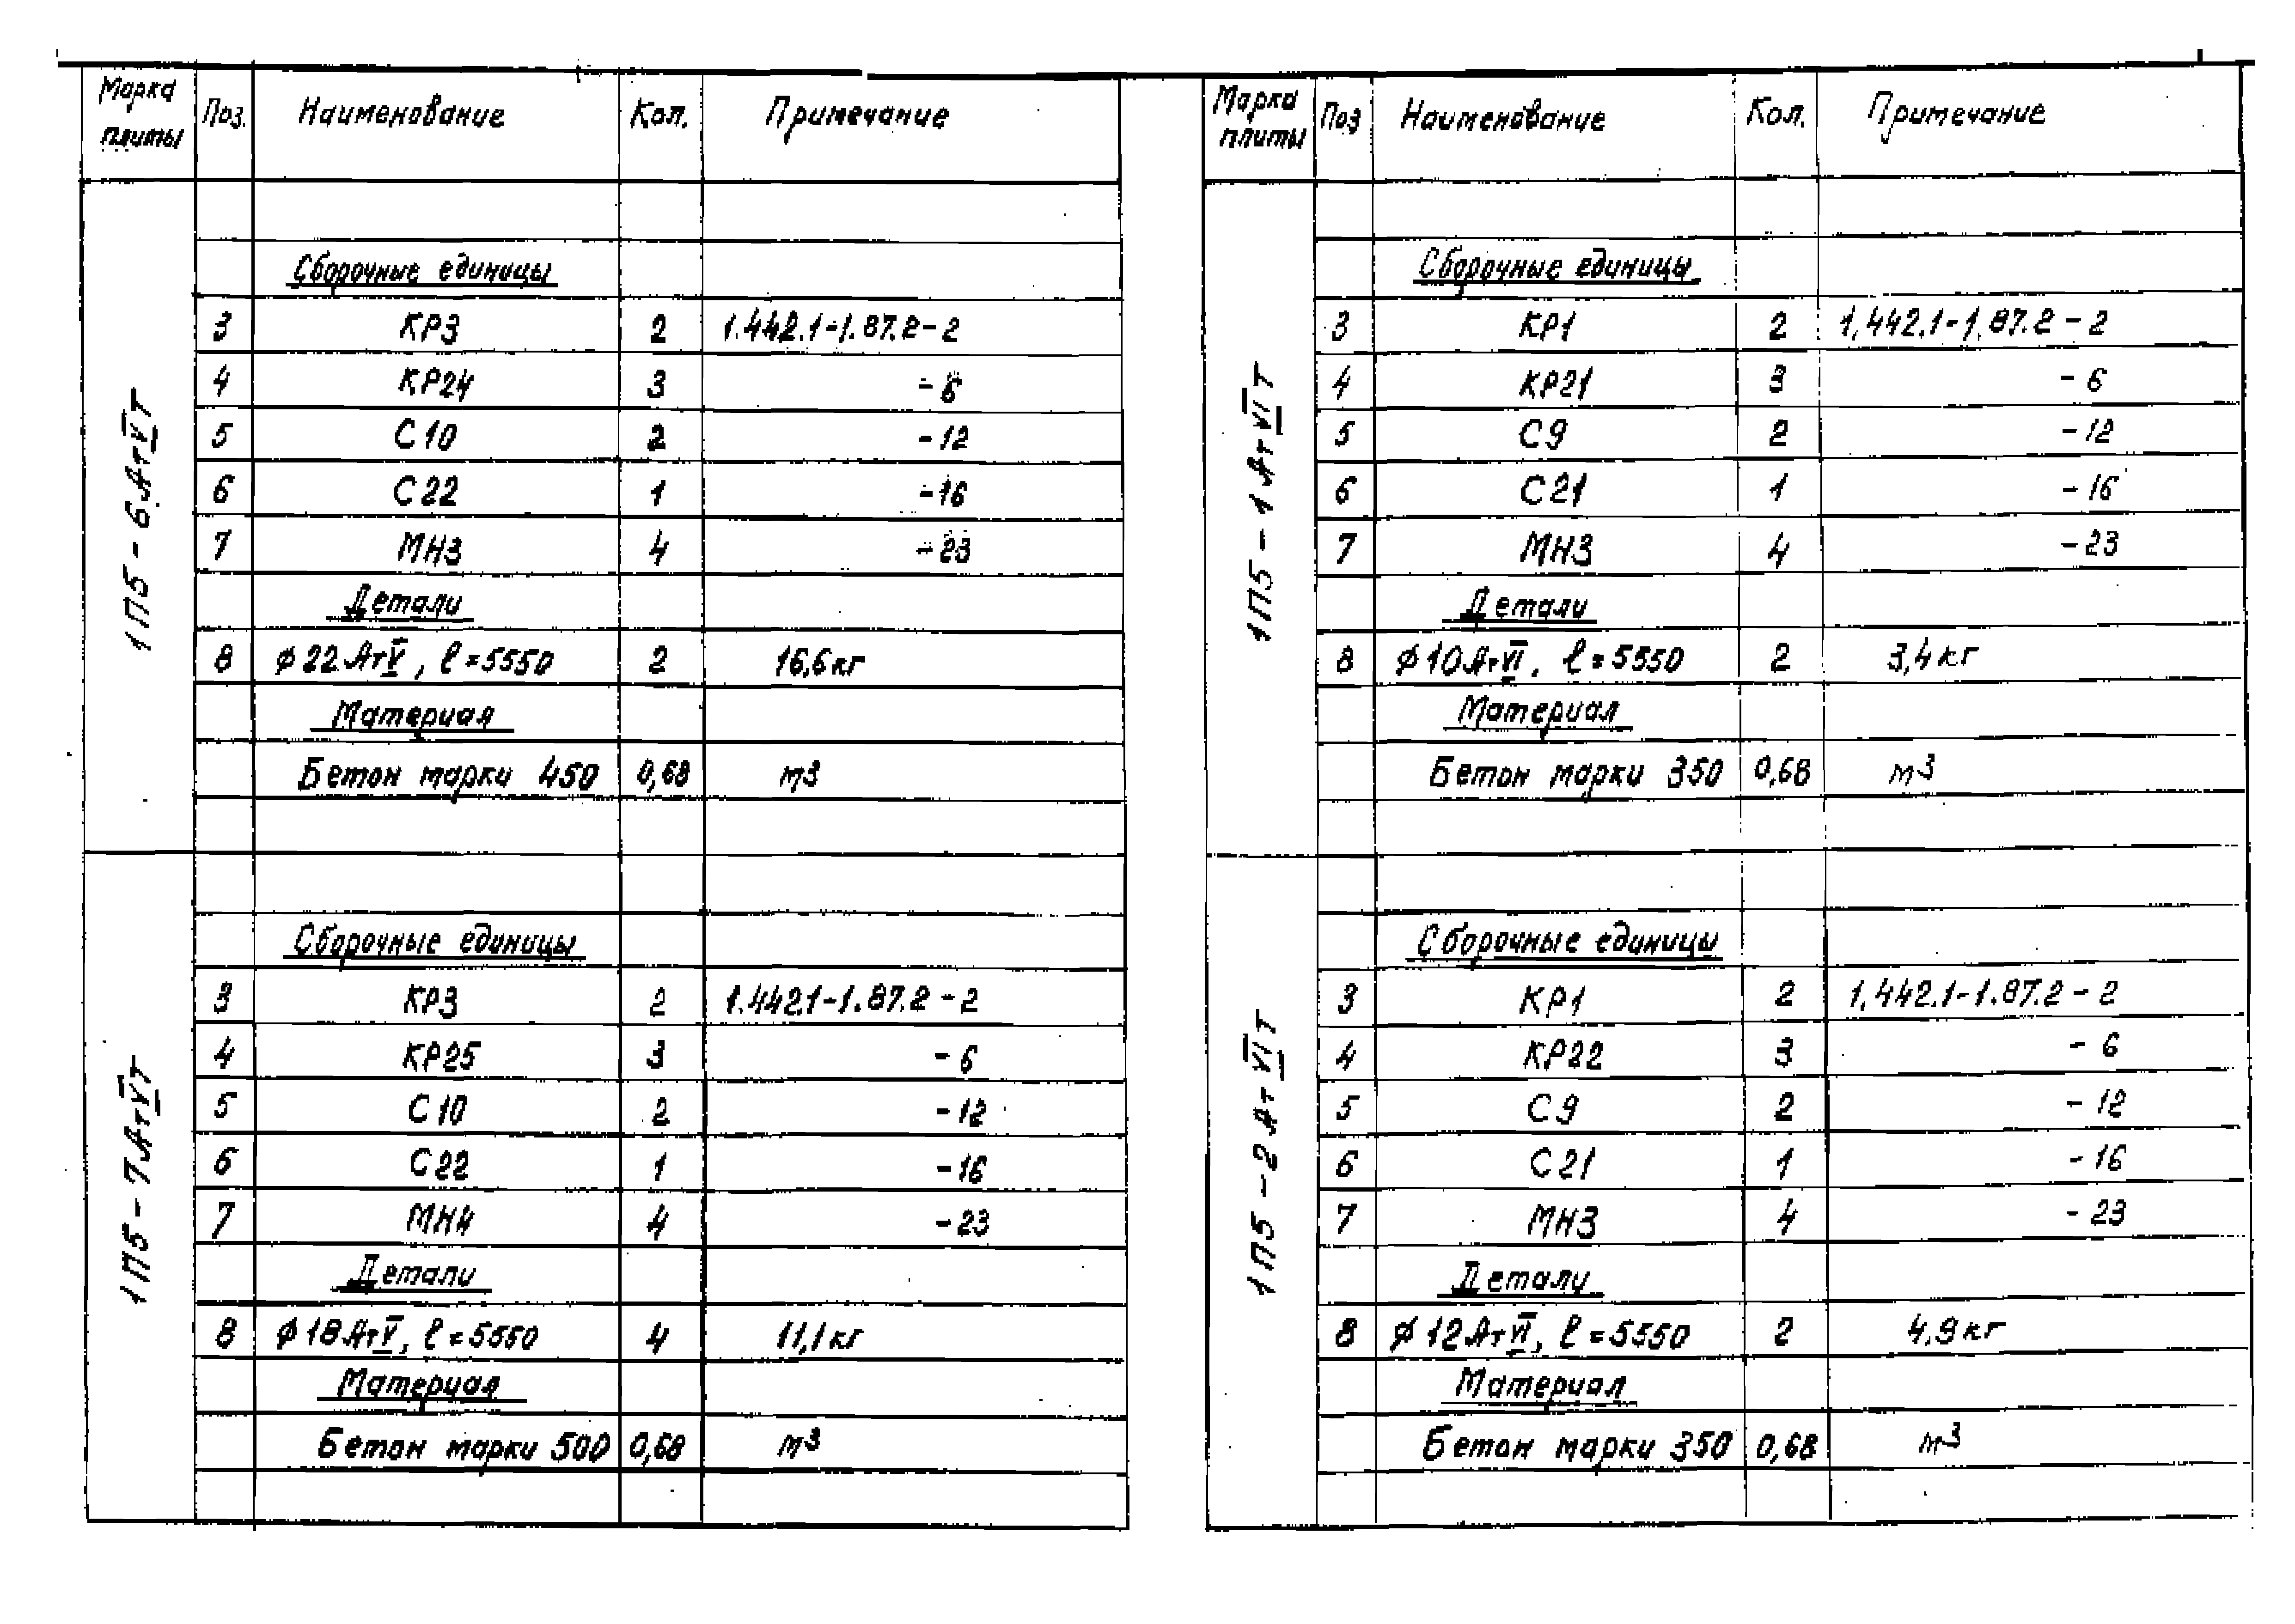 Марка плиты Поз. Наименование Кол. Примечание
1П5-6АтVIТ
Сборочные единицы
3 КР3 2 1.442.1-1.87.2-2
4 КР24 3 -6
5 С10 2 -12
6 С22 1 -16
7 МН3 4 -23
Детали
8 ϕ22АтV, ℓ=5550 2 16,6кг
Материал
Бетон марки 450 0,68 м3
1П5-7АтVIТ
Сборочные единицы
3 КР3 2 1.442.1-1.87.2-2
4 КР25 3 -6
5 С10 2 -12
6 С22 1 -16
7 МН4 4 -23
Детали
8 ϕ18АтV, ℓ=5550 4 11,1кг
Материал
Бетон марки 500 0,68 м3
Марка плиты Поз Наименование Кол. Примечание
1П5-1АтVIТ
Сборочные единицы
3 КР1 2 1.442.1-1.87.2-2
4 КР21 3 -6
5 С9 2 -12
6 С21 1 -16
7 МН3 4 -23
Детали
8 ϕ10АтVI, ℓ=5550 2 3,4кг
Материал
Бетон марки 350 0,68 м3
1П5-2АтVIТ
Сборочные единицы
3 КР1 2 1.442.1-1.87.2-2
4 КР22 3 -6
5 С9 2 -12
6 С21 1 -16
7 МН3 4 -23
Детали
8 ϕ12АтVI, ℓ=5550 2 4,9кг
Материал
Бетон марки 350 0,68 м3